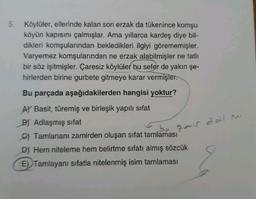 5. Köylüler, ellerinde kalan son erzak da tükenince komşu
köyün kapısını çalmışlar. Ama yıllarca kardeş diye bil-
dikleri komşularından bekledikleri ilgiyi görememişler.
Varyemez komşularından ne erzak alabilmişler ne tatlı
bir söz işitmişler. Çaresiz köylüler bu sefer de yakın şe-
hirlerden birine gurbete gitmeye karar vermişler.
Bu parçada aşağıdakilerden hangisi yoktur?
A) Basit, türemiş ve birleşik yapılı sıfat
B) Adlaşmış sıfat
C) Tamlananı zamirden oluşan sıfat tamlaması
D) Hem niteleme hem belirtme sıfatı almış sözcük
E) Tamlayanı sıfatla nitelenmiş isim tamlaması